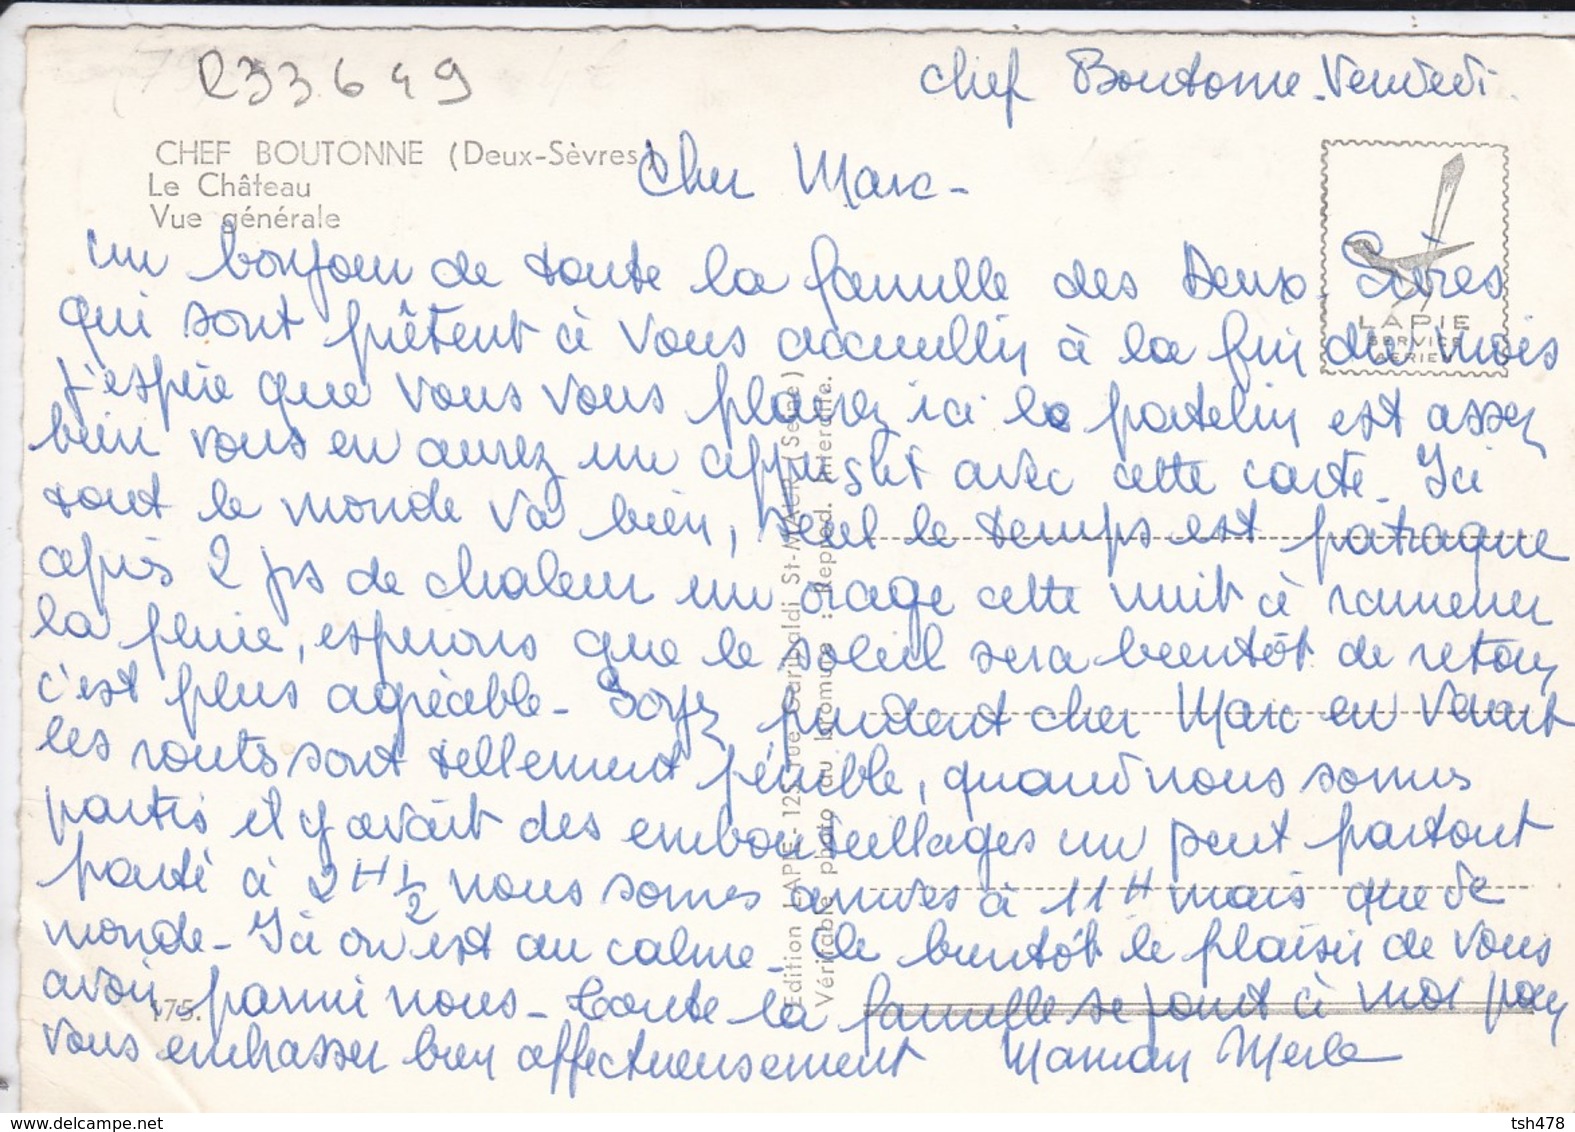 R33649
Chef Boutonne. Vendredi.
CHEF BOUTONNE (Deux-Sèvres)
Le Château
Vue générale
Cher Marc -
un bonjour de toute la famille des Deux. Sèvres
qui sont prêtent à vous accueillir à la fin du mois
j'espère que vous vous plairez ici le patelin est assez
bien vous en aurez un apperçu avec cette carte. Ici
tout le monde va bien, seul le temps est patraque
après 2 jrs de chaleur un orage cette nuit à ramener
la pluie, espérons que le soleil sera bientôt de retour
c'est plus agréable - Soyez prudent cher Marc en venant
les routes sont tellement pénible, quand nous somes
partis il y avait des embouteillages un peut partout
parti à 2H½ nous somes arrivés à 11H mais que de
monde - Ici on est au calme - à bientôt le plaisir de vous
avoir parmi nous - Toute la famille se joint à moi pour
vous embrasser bien affectueusement Maman Merle
LAPIE
SERVICE
AERIEN
175.
Edition LAPIE - 125, rue Garibaldi St-MAUR (Seine)
Véritable photo au bromure : Reprod. Interdite.
delcampe.net
tsh478